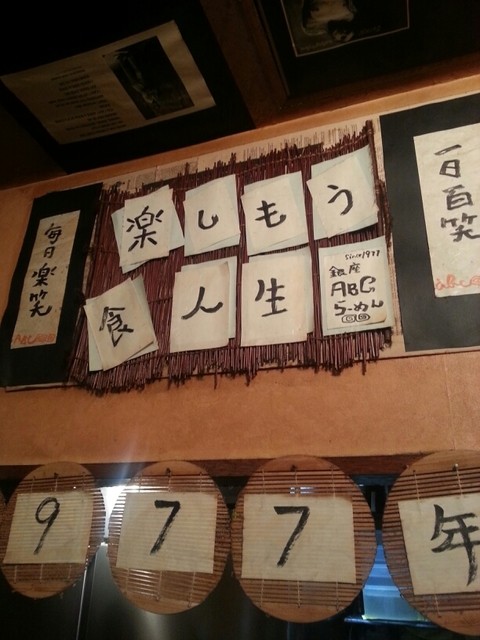 毎日楽笑
楽しもう
食人生
since1977
銀座
ABC
らーめん
一日百笑
977年